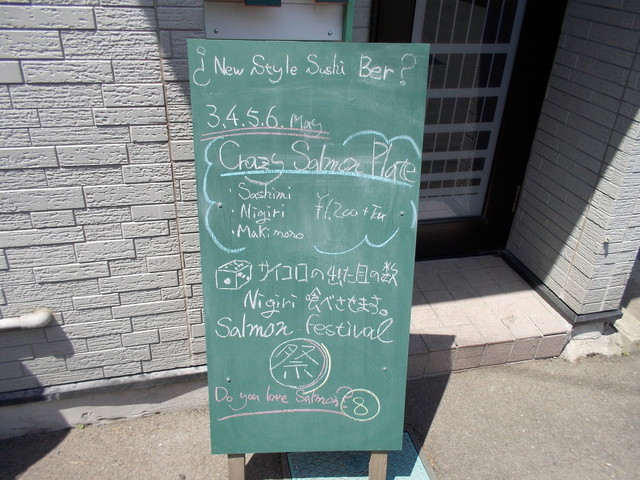 ¿New Style Sushi Ber?
3.4.5.6. May
Crazy Salmon Plate
・Sashimi
・Nigiri ¥1,200+Tax
・Makimono
サイコロの出た目の数
Nigiri 喰べさせます。
Salmon festival
祭
Do you love Salmon?
8